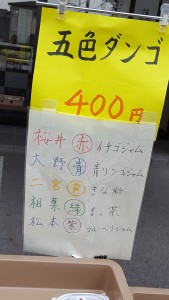 五色ダンゴ
400円
桜井 赤 イチゴジャム
大野 青 青リンゴジャム
二宮 黄 きな粉
相葉 緑 まっ茶
松本 紫 ブルーベリージャム